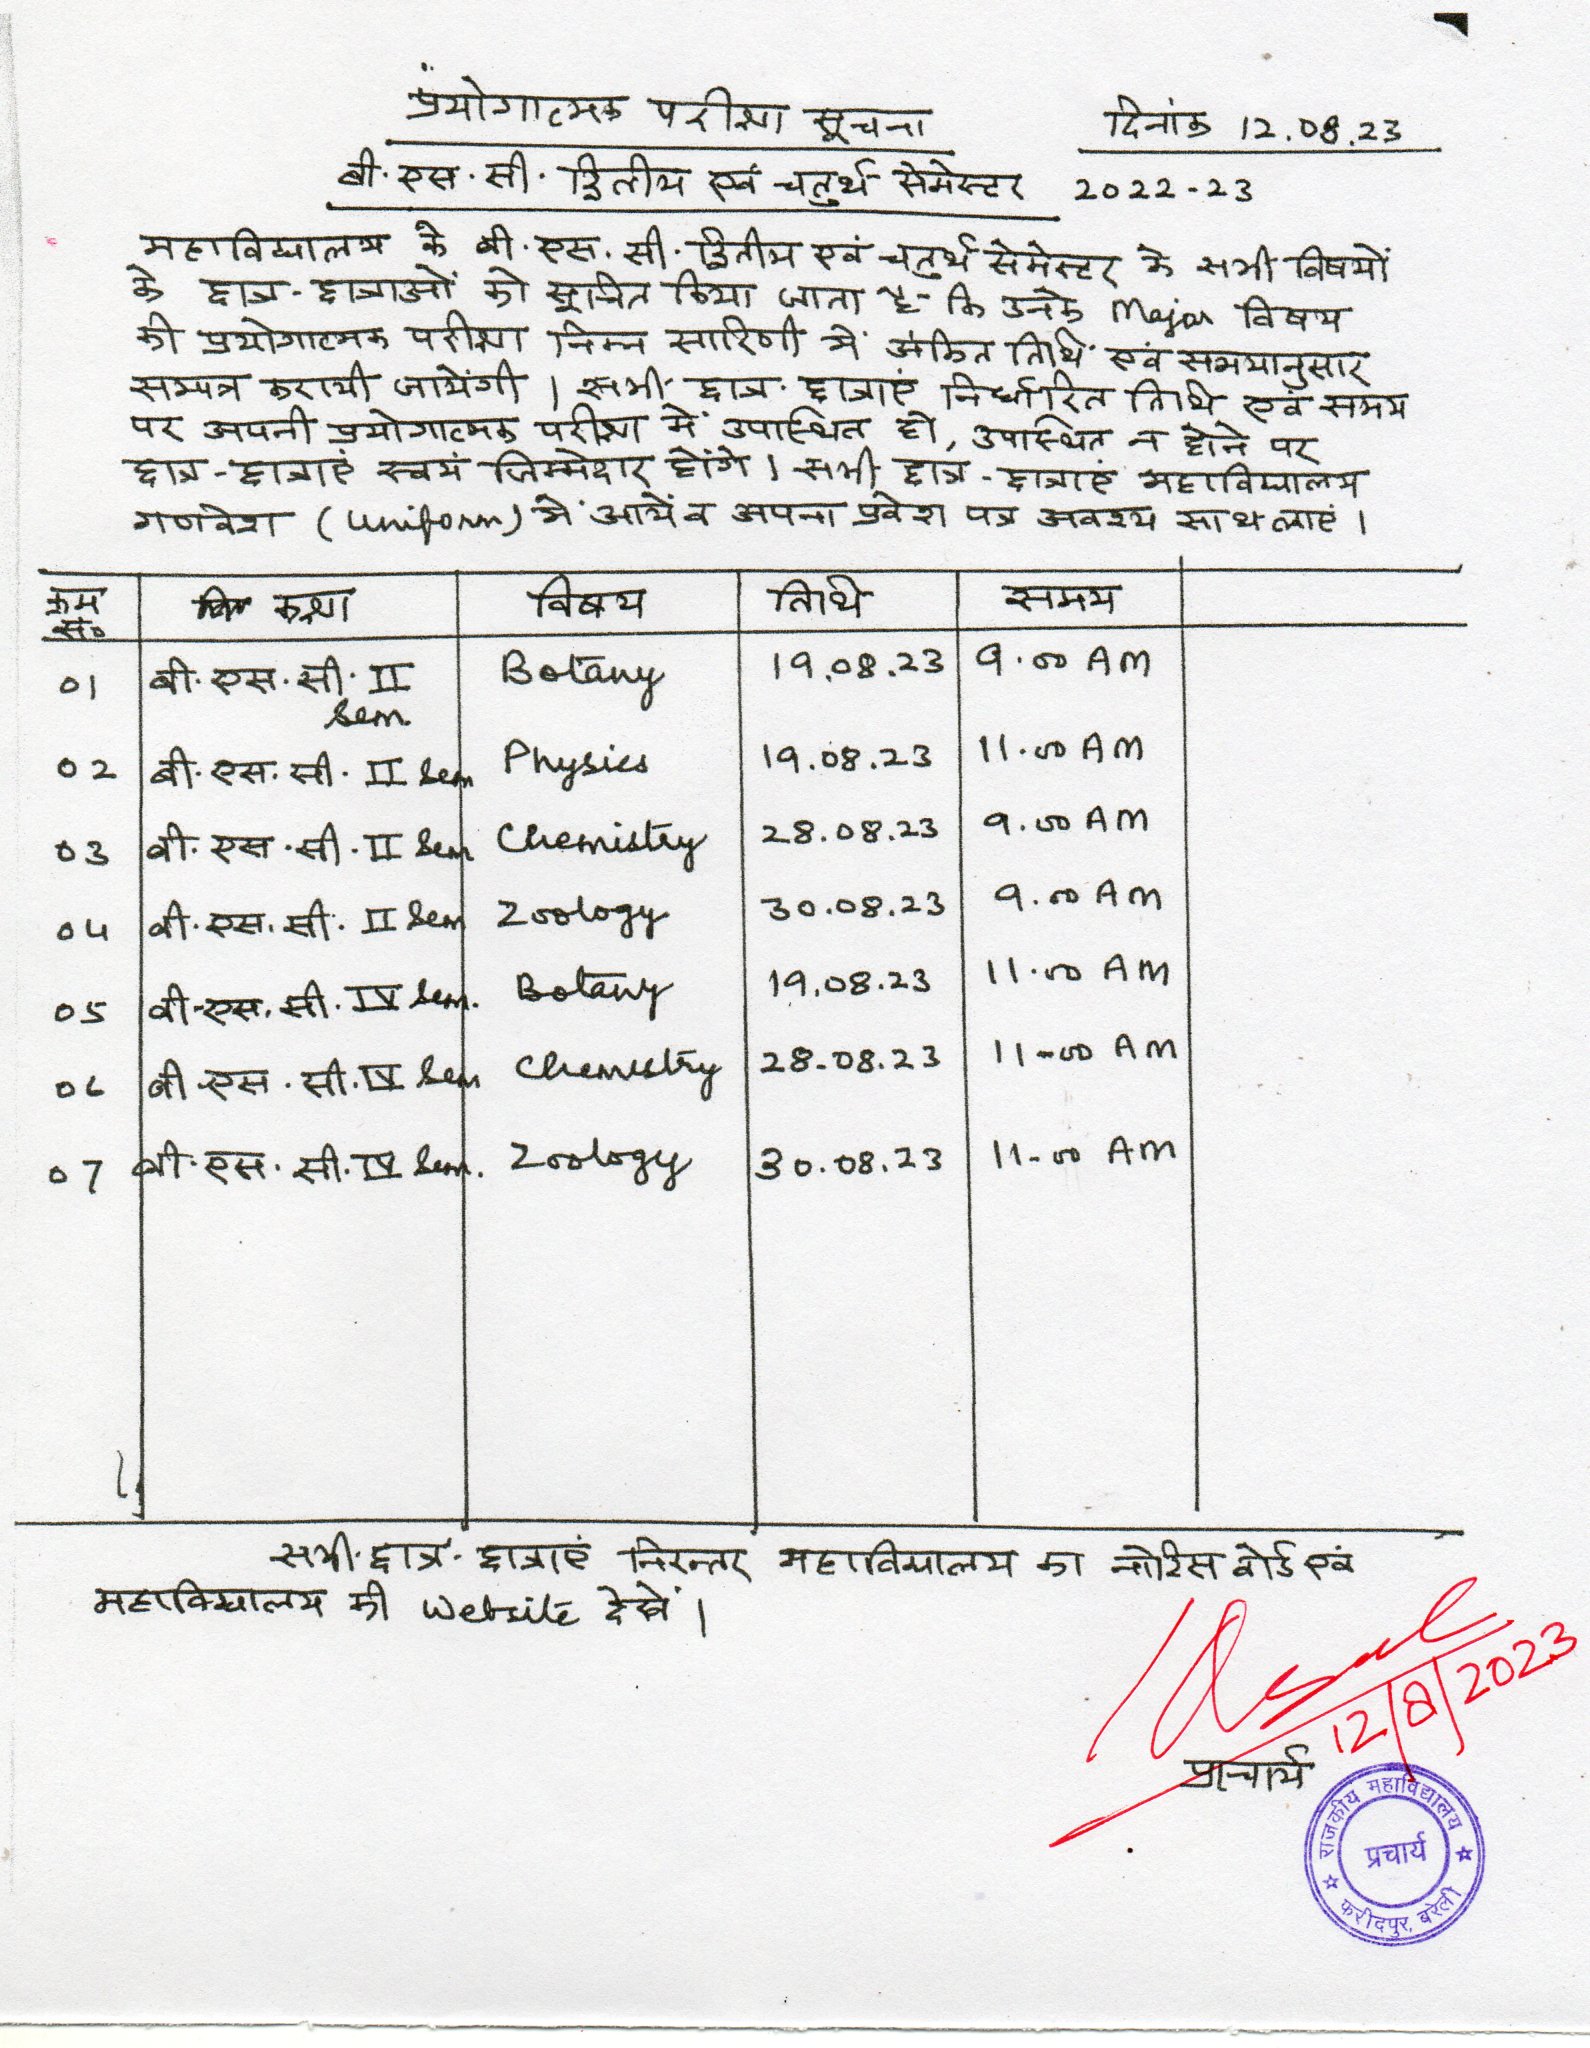 प्रयोगात्मक परीक्षा सूचना दिनांक 12.08.23
बी.एस.सी. द्वितीय एवं चतुर्थ सेमेस्टर 2022-23
महाविद्यालय के बी.एस.सी. द्वितीय एवं चतुर्थ सेमेस्टर के सभी विषयों
के छात्र-छात्राओं को सूचित किया जाता है कि उनके Major विषय
की प्रयोगात्मक परीक्षा निम्न सारिणी में अंकित तिथि एवं समयानुसार
सम्पन्न करायी जायेंगी । सभी छात्र-छात्राएं निर्धारित तिथि एवं समय
पर अपनी प्रयोगात्मक परीक्षा में उपस्थित हों, उपस्थित न होने पर
छात्र-छात्राएं स्वयं जिम्मेदार होंगे । सभी छात्र-छात्राएं महाविद्यालय
गणवेश (Uniform) में आयें व अपना प्रवेश पत्र अवश्य साथ लाएं ।
क्रम सं० कक्षा विषय तिथि समय
01 बी.एस.सी. II Sem Botany 19.08.23 9.00 AM
02 बी.एस.सी. II Sem Physics 19.08.23 11.00 AM
03 बी.एस.सी. II Sem Chemistry 28.08.23 9.00 AM
04 बी.एस.सी. II Sem Zoology 30.08.23 9.00 AM
05 बी.एस.सी. IV Sem. Botany 19.08.23 11.00 AM
06 बी.एस.सी. IV Sem Chemistry 28-08.23 11-00 AM
07 बी.एस.सी. IV Sem. Zoology 30.08.23 11-00 AM
सभी छात्र-छात्राएं निरन्तर महाविद्यालय का नोटिस बोर्ड एवं
महाविद्यालय की Website देखें ।
12/8/2023
प्राचार्य
राजकीय महाविद्यालय
प्रचार्य
फरीदपुर, बरेली